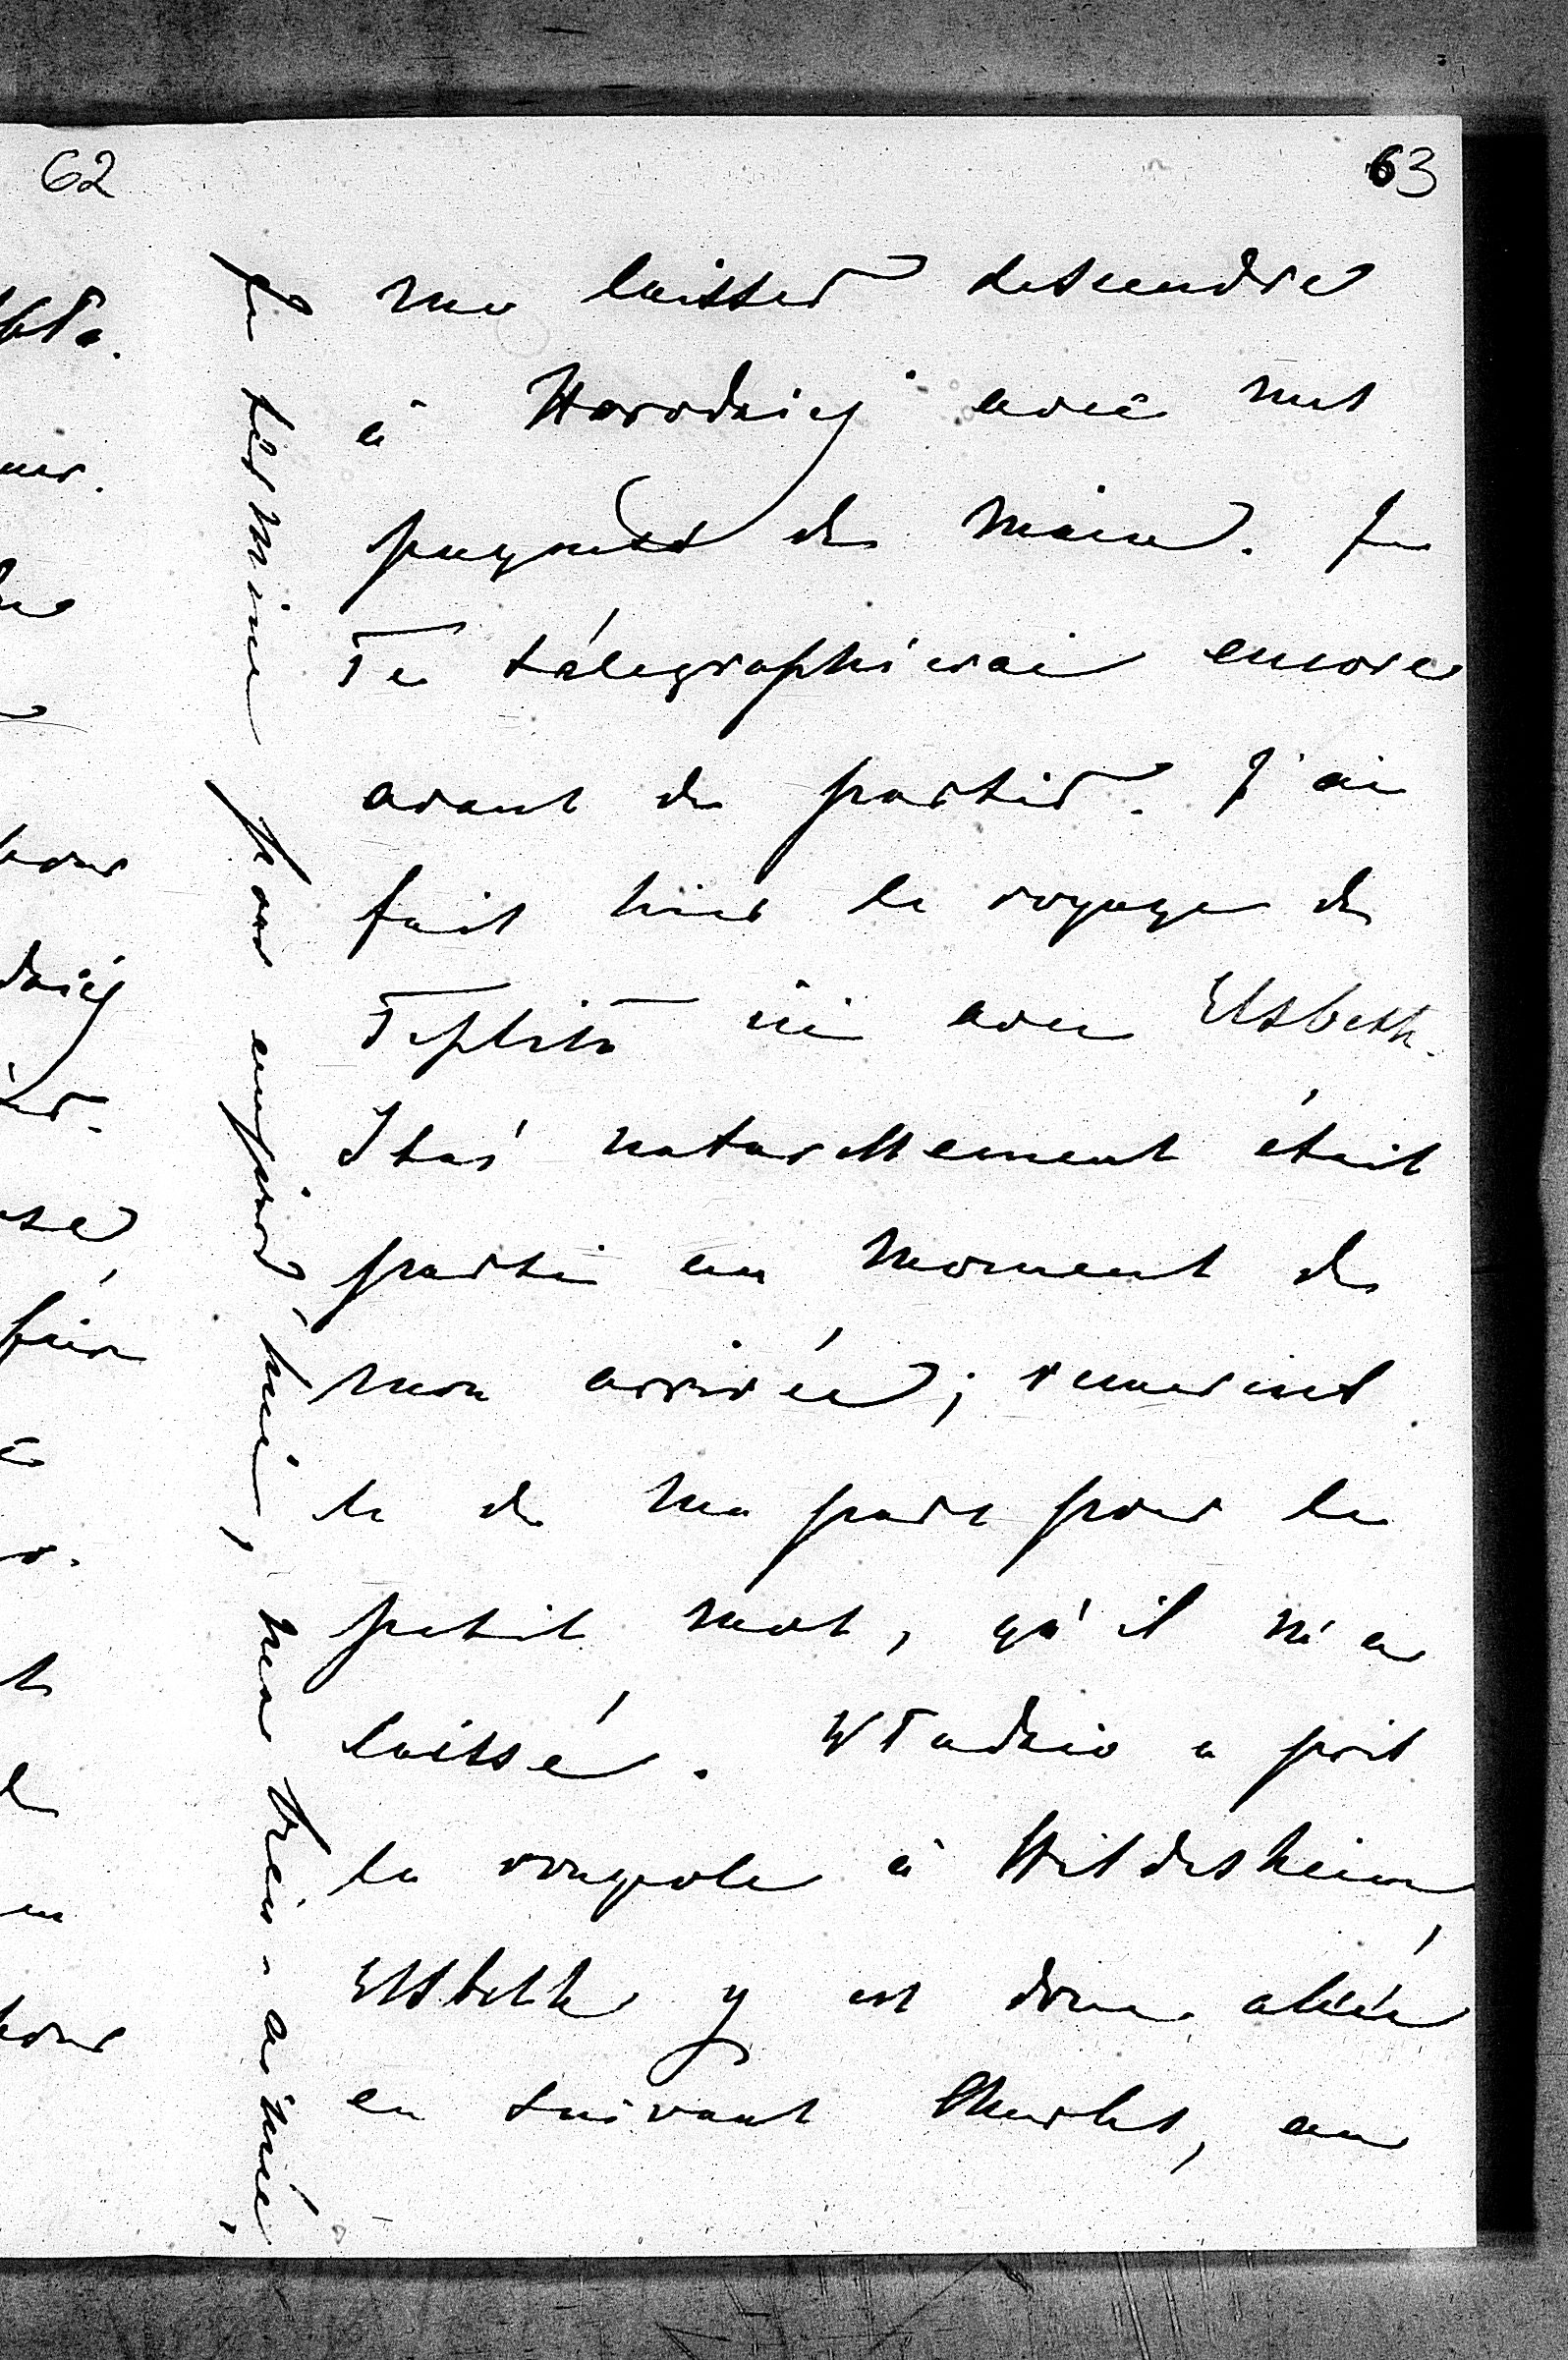 62
63
me laisser descendre
à Horodziej avec mes
paquets de main. Je
Te télegraphierai encore
avant de partir. J'ai
fait hier le voyage de
Teplitz ici avec Elsbeth.
Staś naturellement était
parti au moment de
mon arrivée; remerciet
le de ma part pour le
petit mot, qu'il m'a
laissé. Władzio a prit
la rougeole à Hildesheim,
Elsbeth y est donc allée
en suivant Charles, au
Je termine pour aujourd'hui,
ma bien-aimée,